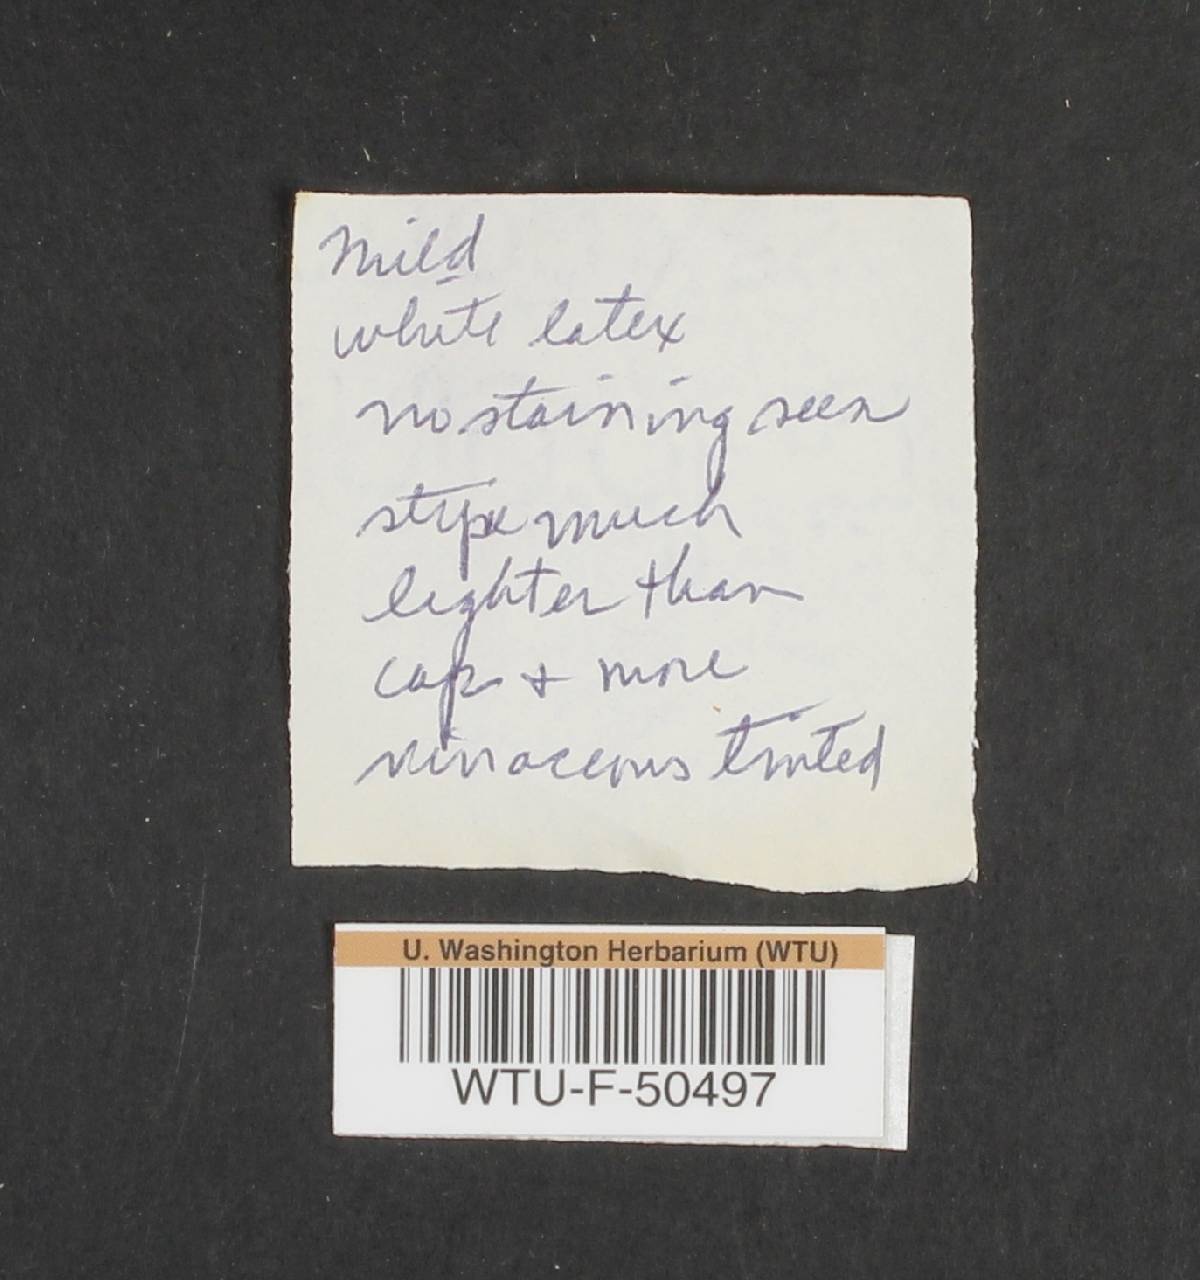 Mild
white latex
no staining seen
stipe much
lighter than
cap + more
vinaceous tinted
U. Washington Herbarium (WTU)
WTU-F-50497